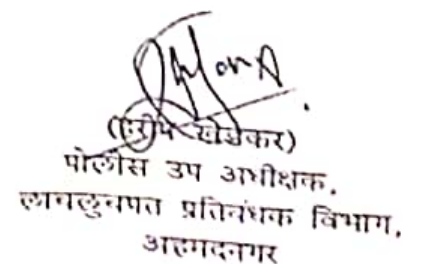 पोलीस उप अधीक्षक,
लाचलुचपत प्रतिबंधक विभाग,
अहमदनगर